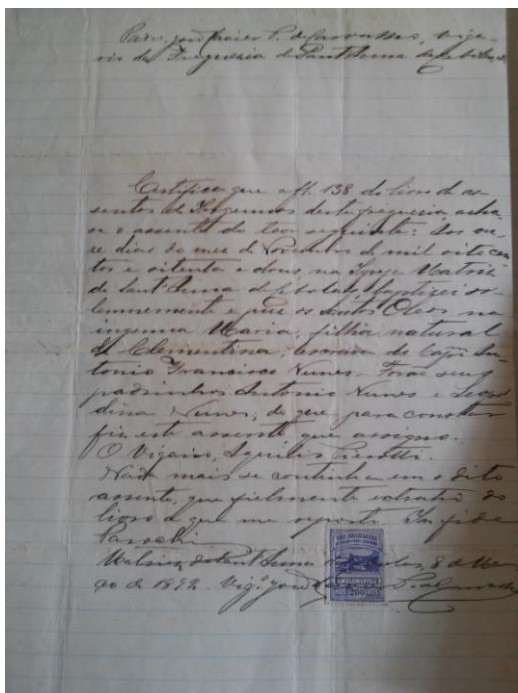 Padre José Xavier P. de Carvalho, Viga-
rio da Freguesia de Sant'Anna de
Certifico que a fl. 138 do livro de as-
sentos de Ingenuos desta freguesia acha-
se o assento do teor seguinte: Aos on-
ze dias do mez de Novembro de mil oito cen-
tos e oitenta e dous na Igreja Matriz
de Sant'Anna de baptizei so-
lemnemente e puz os Santos Oleos na
ingenua Maria, filha natural
de Clementina, escrava de Capm An-
tonio Francisco Nunes. Forão seus
padrinhos Antonio Nunes e Leopol
dina Nunes, do que para constar
fiz este assento que assigno.
O Vigario, Aquiles
Nada mais se continha em o dito
assento, que fielmente extrahi do
livro a que me reporto. In fide
Parochi
Matriz de Sant'Anna 8 de Mar-
ço de 1892. Vig.º José
200